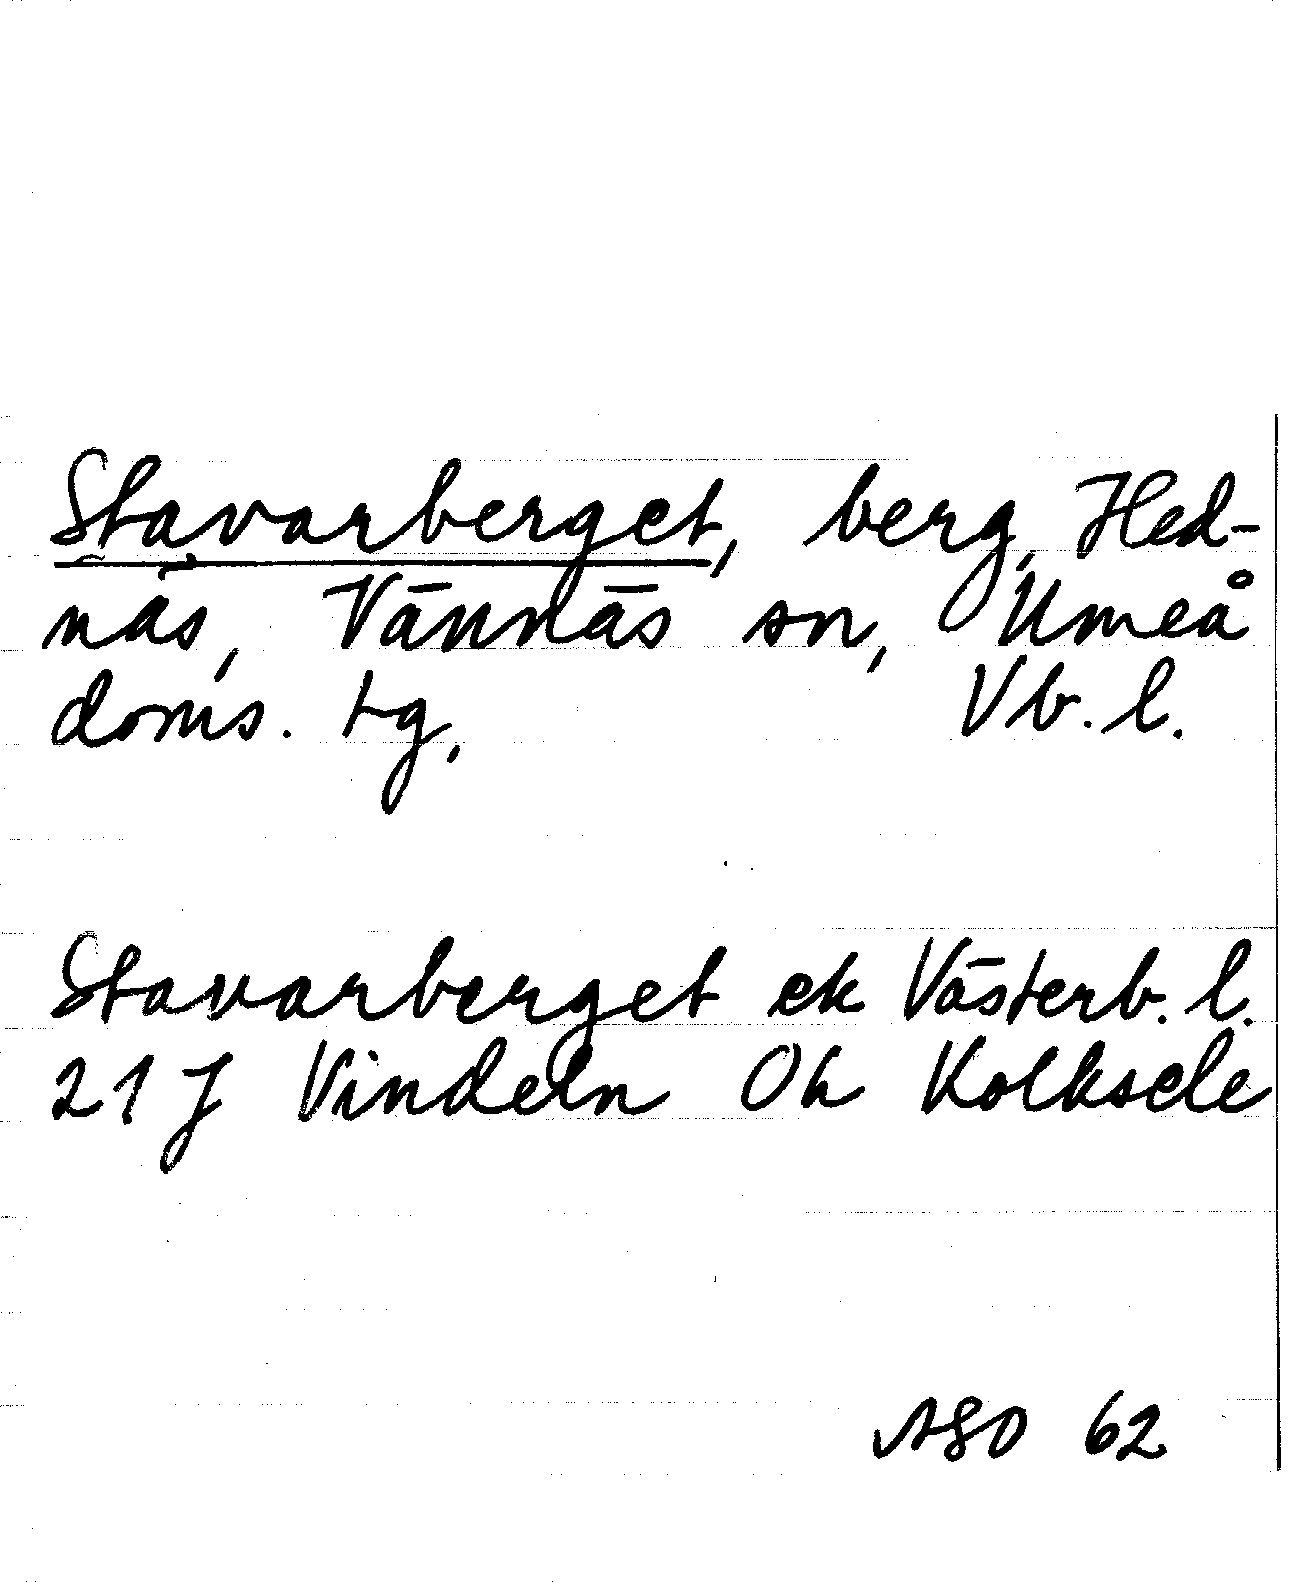 Stavarberget, berg, Hed-
näs, Vännäs sn, Umeå
doms. tg, Vb. l.
Stavarberget ek Västerb. l.
21 J Vindeln Oh Kolksele
ASO 62